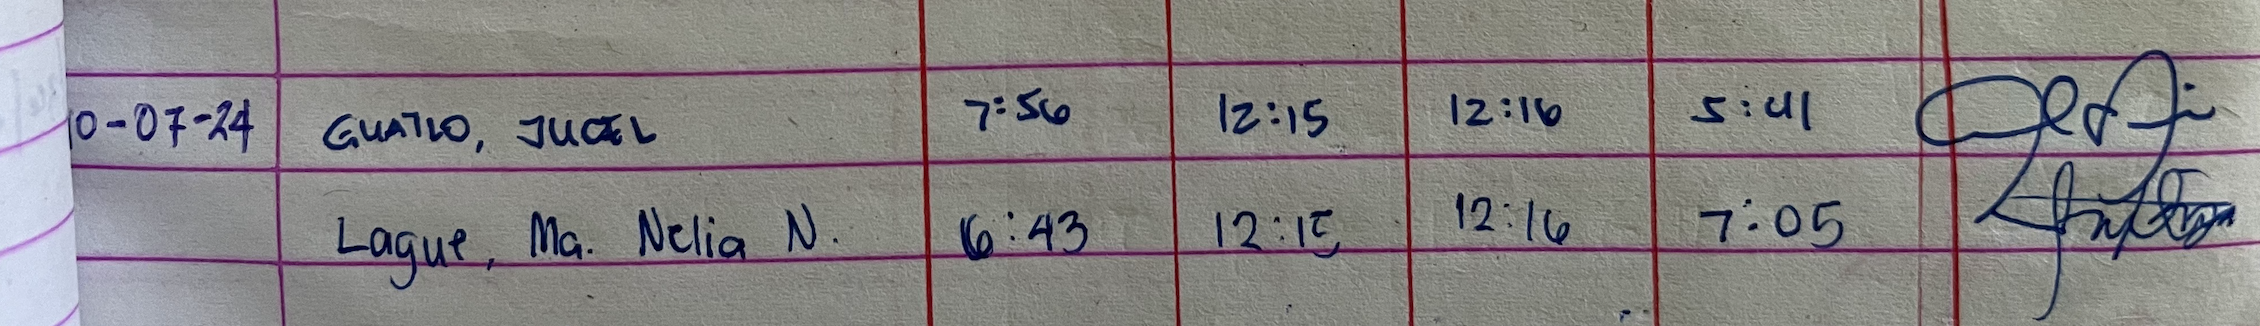 10-07-24 GUATLO, JUCEL 7:56 12:15 12:16 5:41
Lague, Ma. Nelia N. 6:43 12:15 12:16 7:05